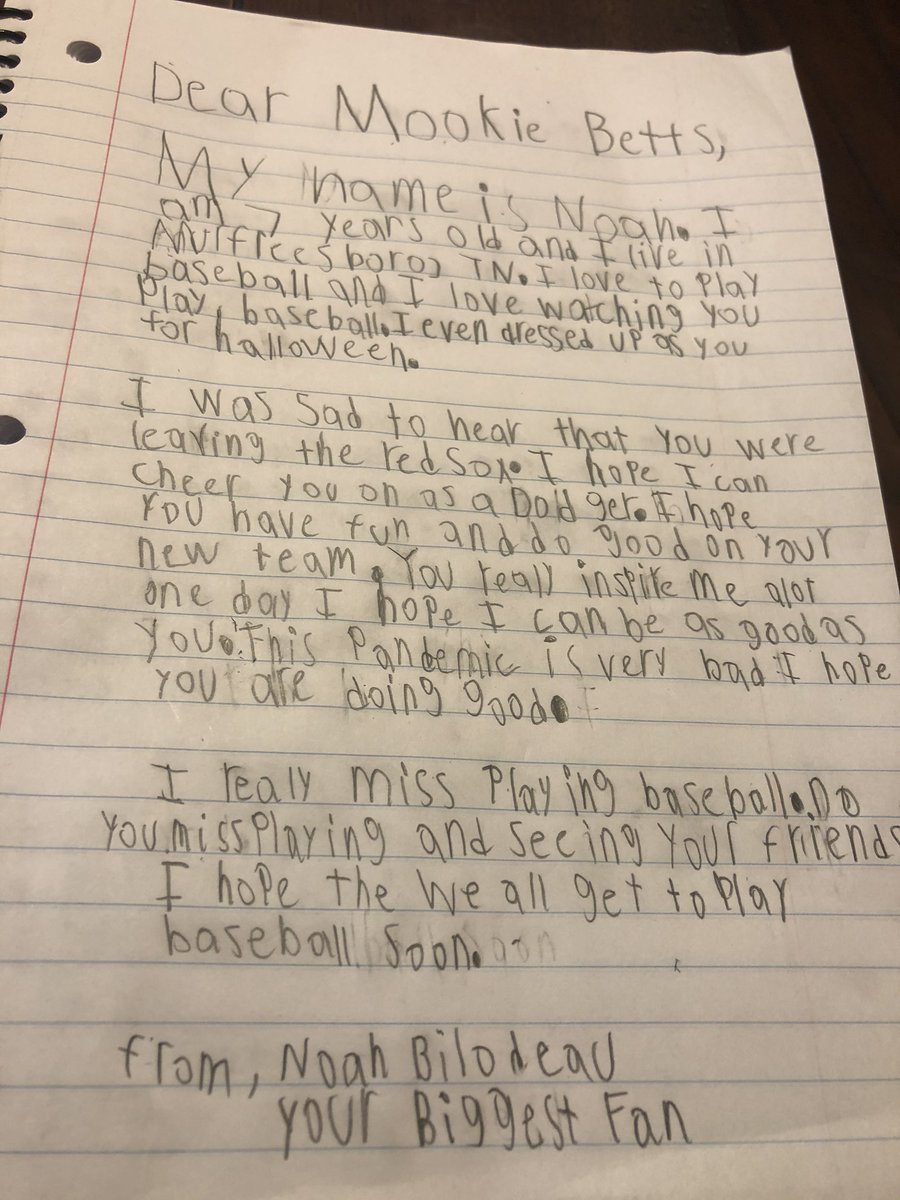 Dear Mookie Betts,
My name is Noah. I
am 7 years old and I live in
Murfreesboro, TN. I love to play
baseball and I love watching you
Play baseball. I even dressed up as you
for halloween.
I was sad to hear that you were
leaving the red Sox. I hope I can
cheer you on as a Dodger. I hope
you have fun and do good on your
new team. You really inspire me alot
one day I hope I can be as good as
you. This Pandemic is very bad I hope
you are doing good.
I realy miss Playing baseball. Do
you miss Playing and seeing your friends
I hope the we all get to Play
baseball soon.
from, Noah Bilodeau
your Biggest Fan